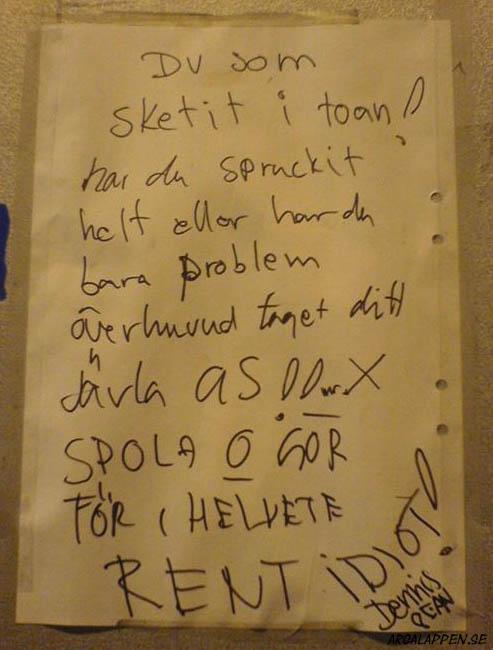 DU som
sketit i toan!
har du spruckit
helt eller har du
bara problem
överhuvud taget ditt
Jävla AS!!
SPOLA O GÖR
FÖR I HELVETE
RENT IDIOT!
Dennis
ARGALAPPEN.SE